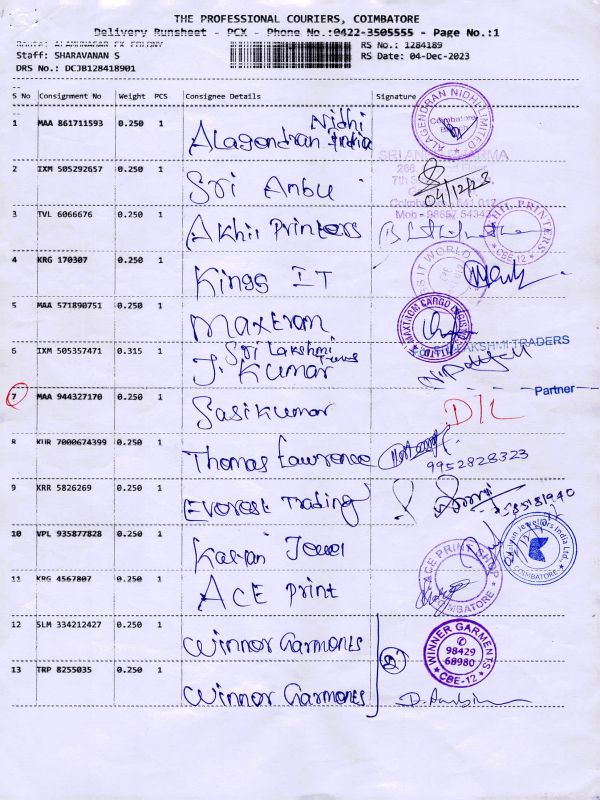 THE PROFESSIONAL COURIERS, COIMBATORE
Delivery Runsheet - PCX - Phone No.:0422-3505555 - Page No.:1
RS No.: 1284189
Staff: SHARAVANAN S
RS Date: 04-Dec-2023
DRS No.: DCJB128418901
S No Consignment No Weight PCS Consignee Details Signature
1 MAA 861711593 0.250 1 Alagendran Nidhi India
ALAGENDRAN NIDHI LIMITED
Coimbatore
2 IXM 505292657 0.250 1 Sri Ambu
04/12/23
3 TVL 6066676 0.250 1 Akhil Printers
PRINTERS
CBE-12
4 KRG 170307 0.250 1 Kings IT
IT WORLD
5 MAA 571890751 0.250 1 Maxtrom
6 IXM 505357471 0.315 1 Sri Lakshmi
J. Kumar
LAKSHMI TRADERS
Partner
7 MAA 944327170 0.250 1 Sasikumar
D/L
8 KUR 7000674399 0.250 1 Thomas Lawrence
9952828323
9 KRR 5826269 0.250 1 Everest Trading
10 VPL 935877828 0.250 1 Kalyan Jewel
Jewellers India Ltd.
COIMBATORE
11 KRG 4567807 0.250 1 ACE Print
ACE PRINT SHOP
COIMBATORE
12 SLM 334212427 0.250 1 Winnor Garmones
WINNER GARMENTS
98429
68980
CBE-12
13 TRP 8255035 0.250 1 Winnor Garmones